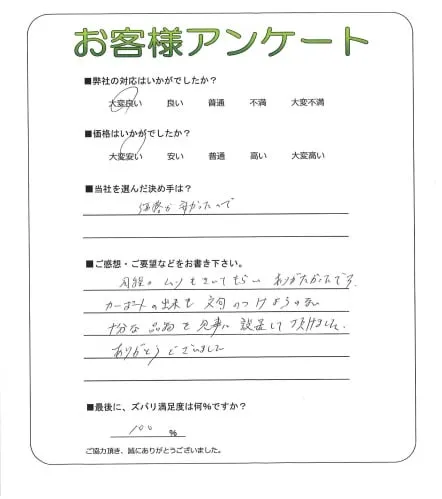 お客様アンケート
■弊社の対応はいかがでしたか？
大変良い 良い 普通 不満 大変不満
■価格はいかがでしたか？
大変安い 安い 普通 高い 大変高い
■当社を選んだ決め手は？
価格が安かったので
■ご感想・ご要望などをお書き下さい。
ムリもきいてもらい ありがたかったです。
カーポートの出来も 文句のつけようのない
十分な 品物を 見事に 設置して 頂けました。
ありがとうございました
■最後に、ズバリ満足度は何%ですか？
100 %
ご協力頂き、誠にありがとうございました。